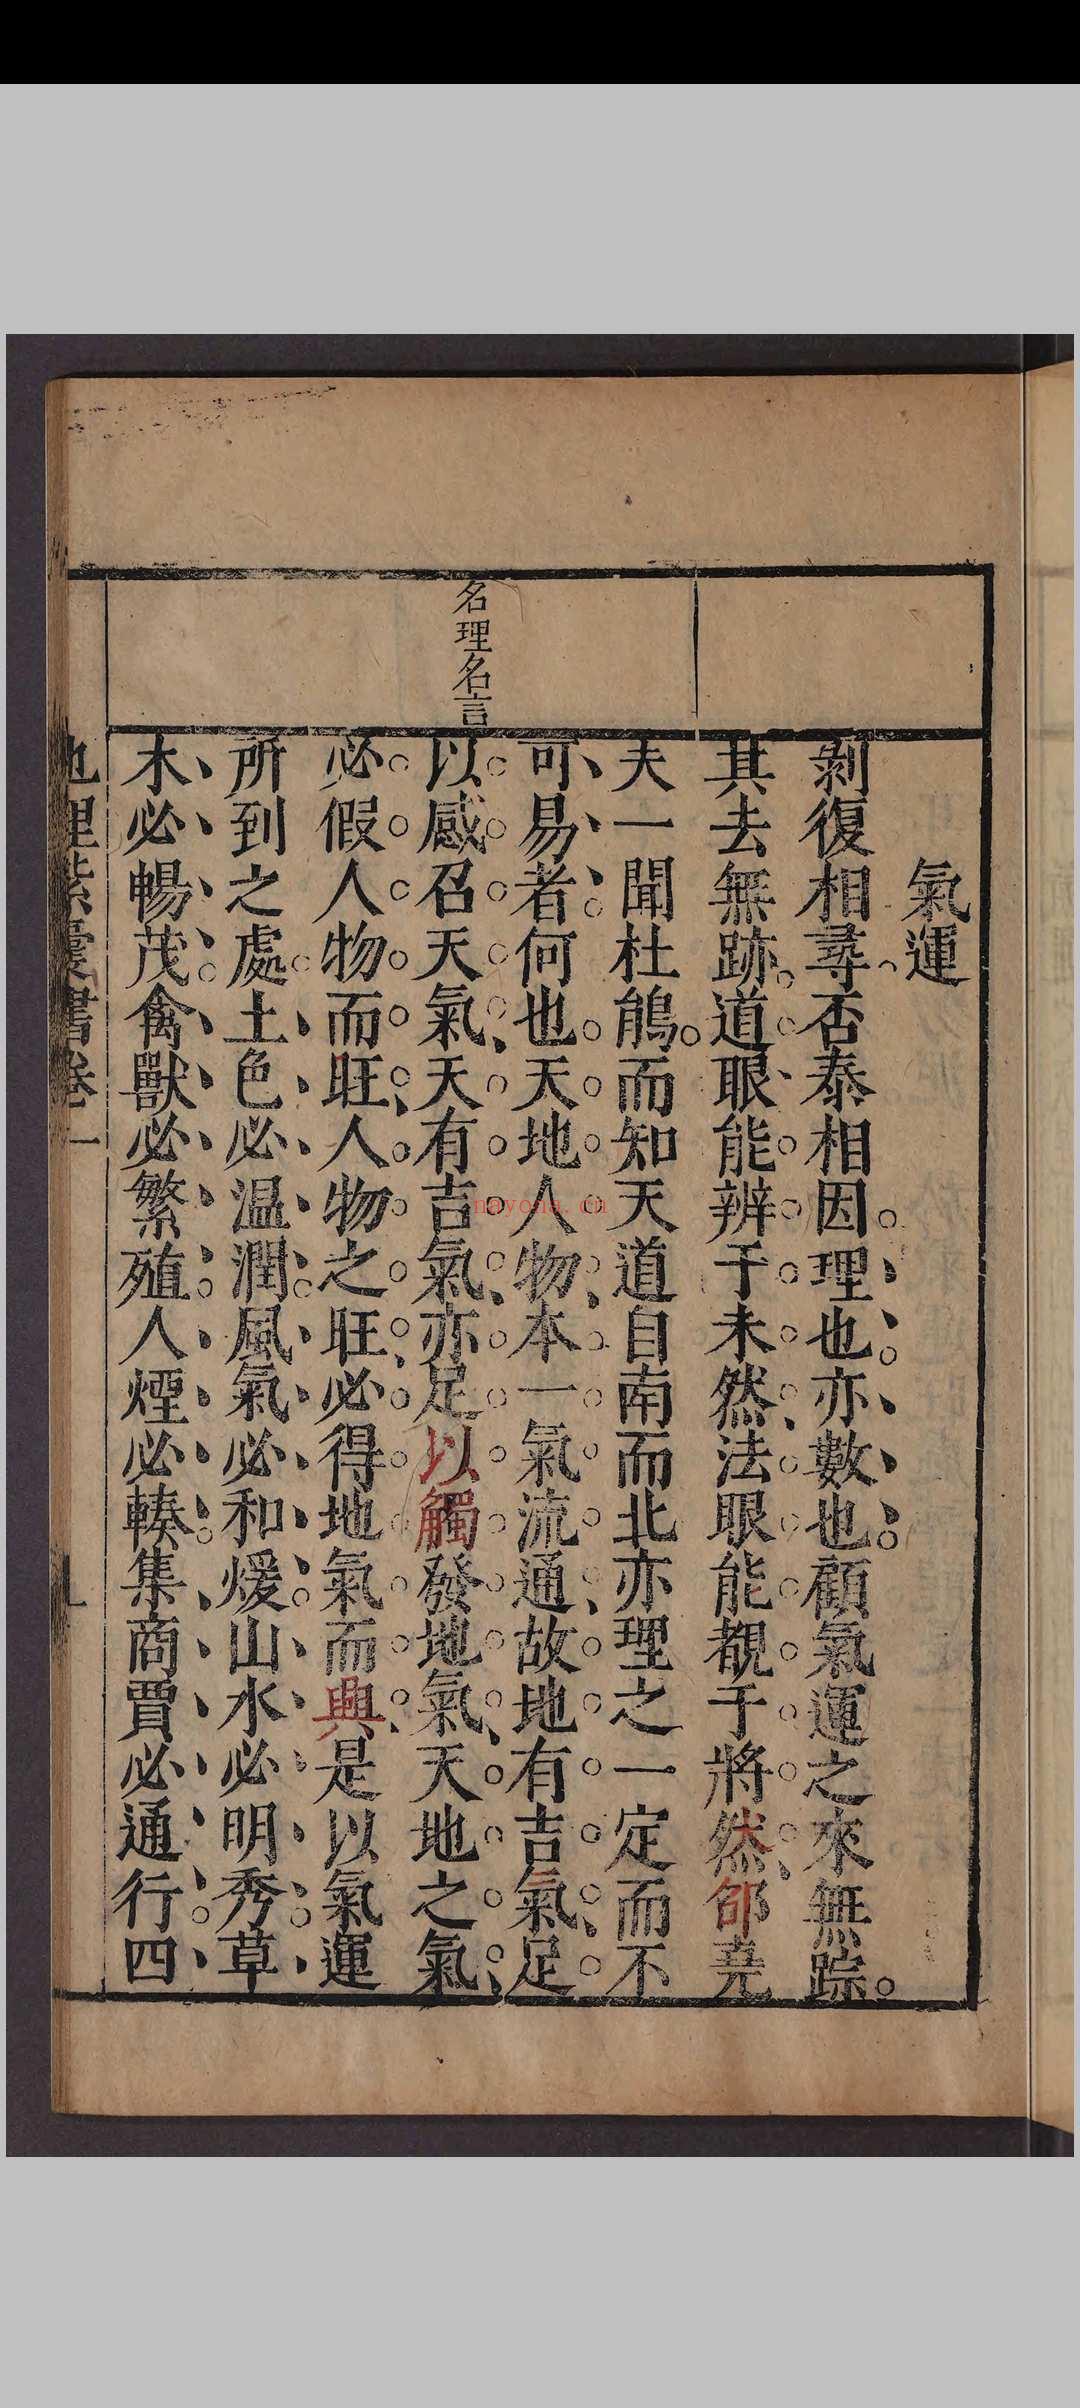 氣運
剝復相尋否泰相因理也亦數也顧氣運之來無踪
其去無跡道眼能辨于未然法眼能覩于將然邵堯
夫一聞杜鵑而知天道自南而北亦理之一定而不
可易者何也天地人物本一氣流通故地有吉氣足
以感召天氣天有吉氣亦足以觸發地氣天地之氣
必假人物而旺人物之旺必得地氣而興是以氣運
所到之處土色必溫潤風氣必和煖山水必明秀草
木必暢茂禽獸必繁殖人煙必輳集商賈必通行四
名理名言
地理紫囊書卷一
nayona.cn